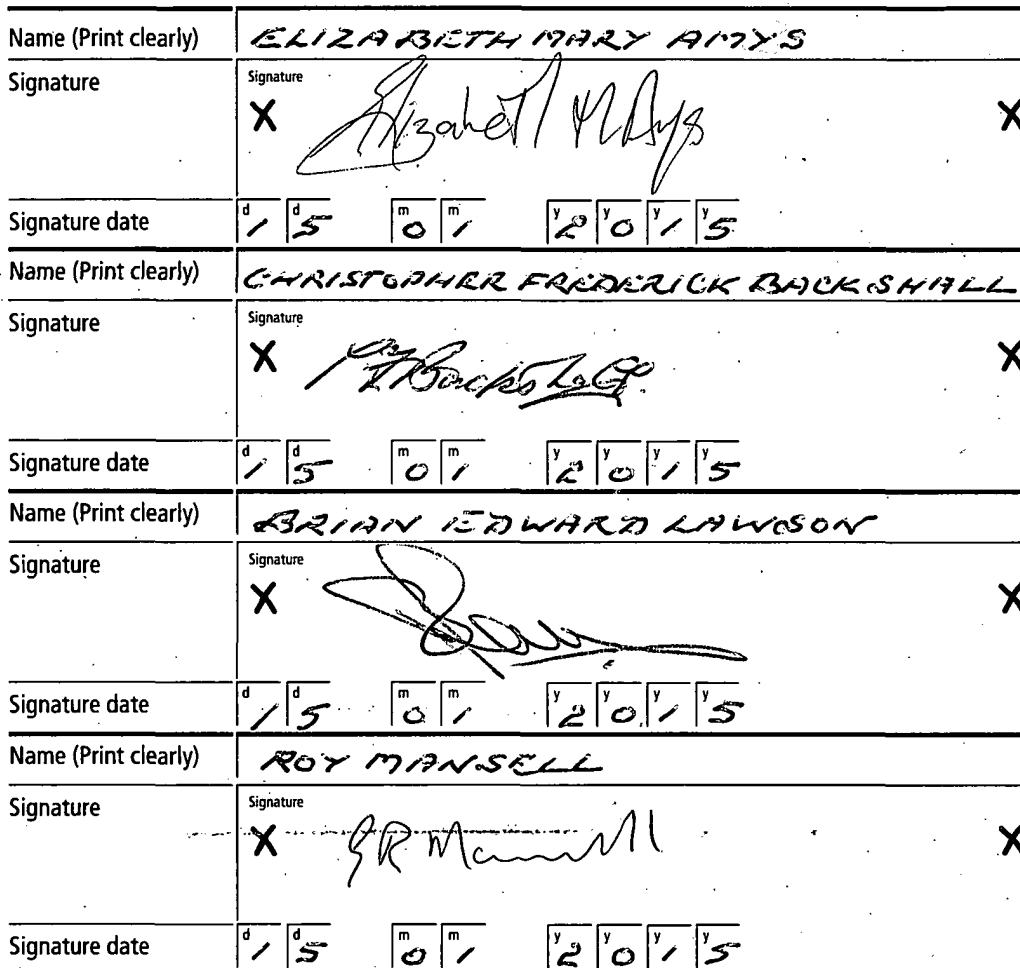 Name (Print clearly) ELIZABETH MARY AMYS
Signature Signature
X Elizabeth M Amys X
Signature date d1 d5 m0 m1 y2 y0 y1 y5
Name (Print clearly) CHRISTOPHER FREDERICK BACKSHALL
Signature Signature
X Backshall X
Signature date d1 d5 m0 m1 y2 y0 y1 y5
Name (Print clearly) BRIAN EDWARD LAWSON
Signature Signature
X X
Signature date d1 d5 m0 m1 y2 y0 y1 y5
Name (Print clearly) ROY MANSELL
Signature Signature
X R Mansell X
Signature date d1 d5 m0 m1 y2 y0 y1 y5